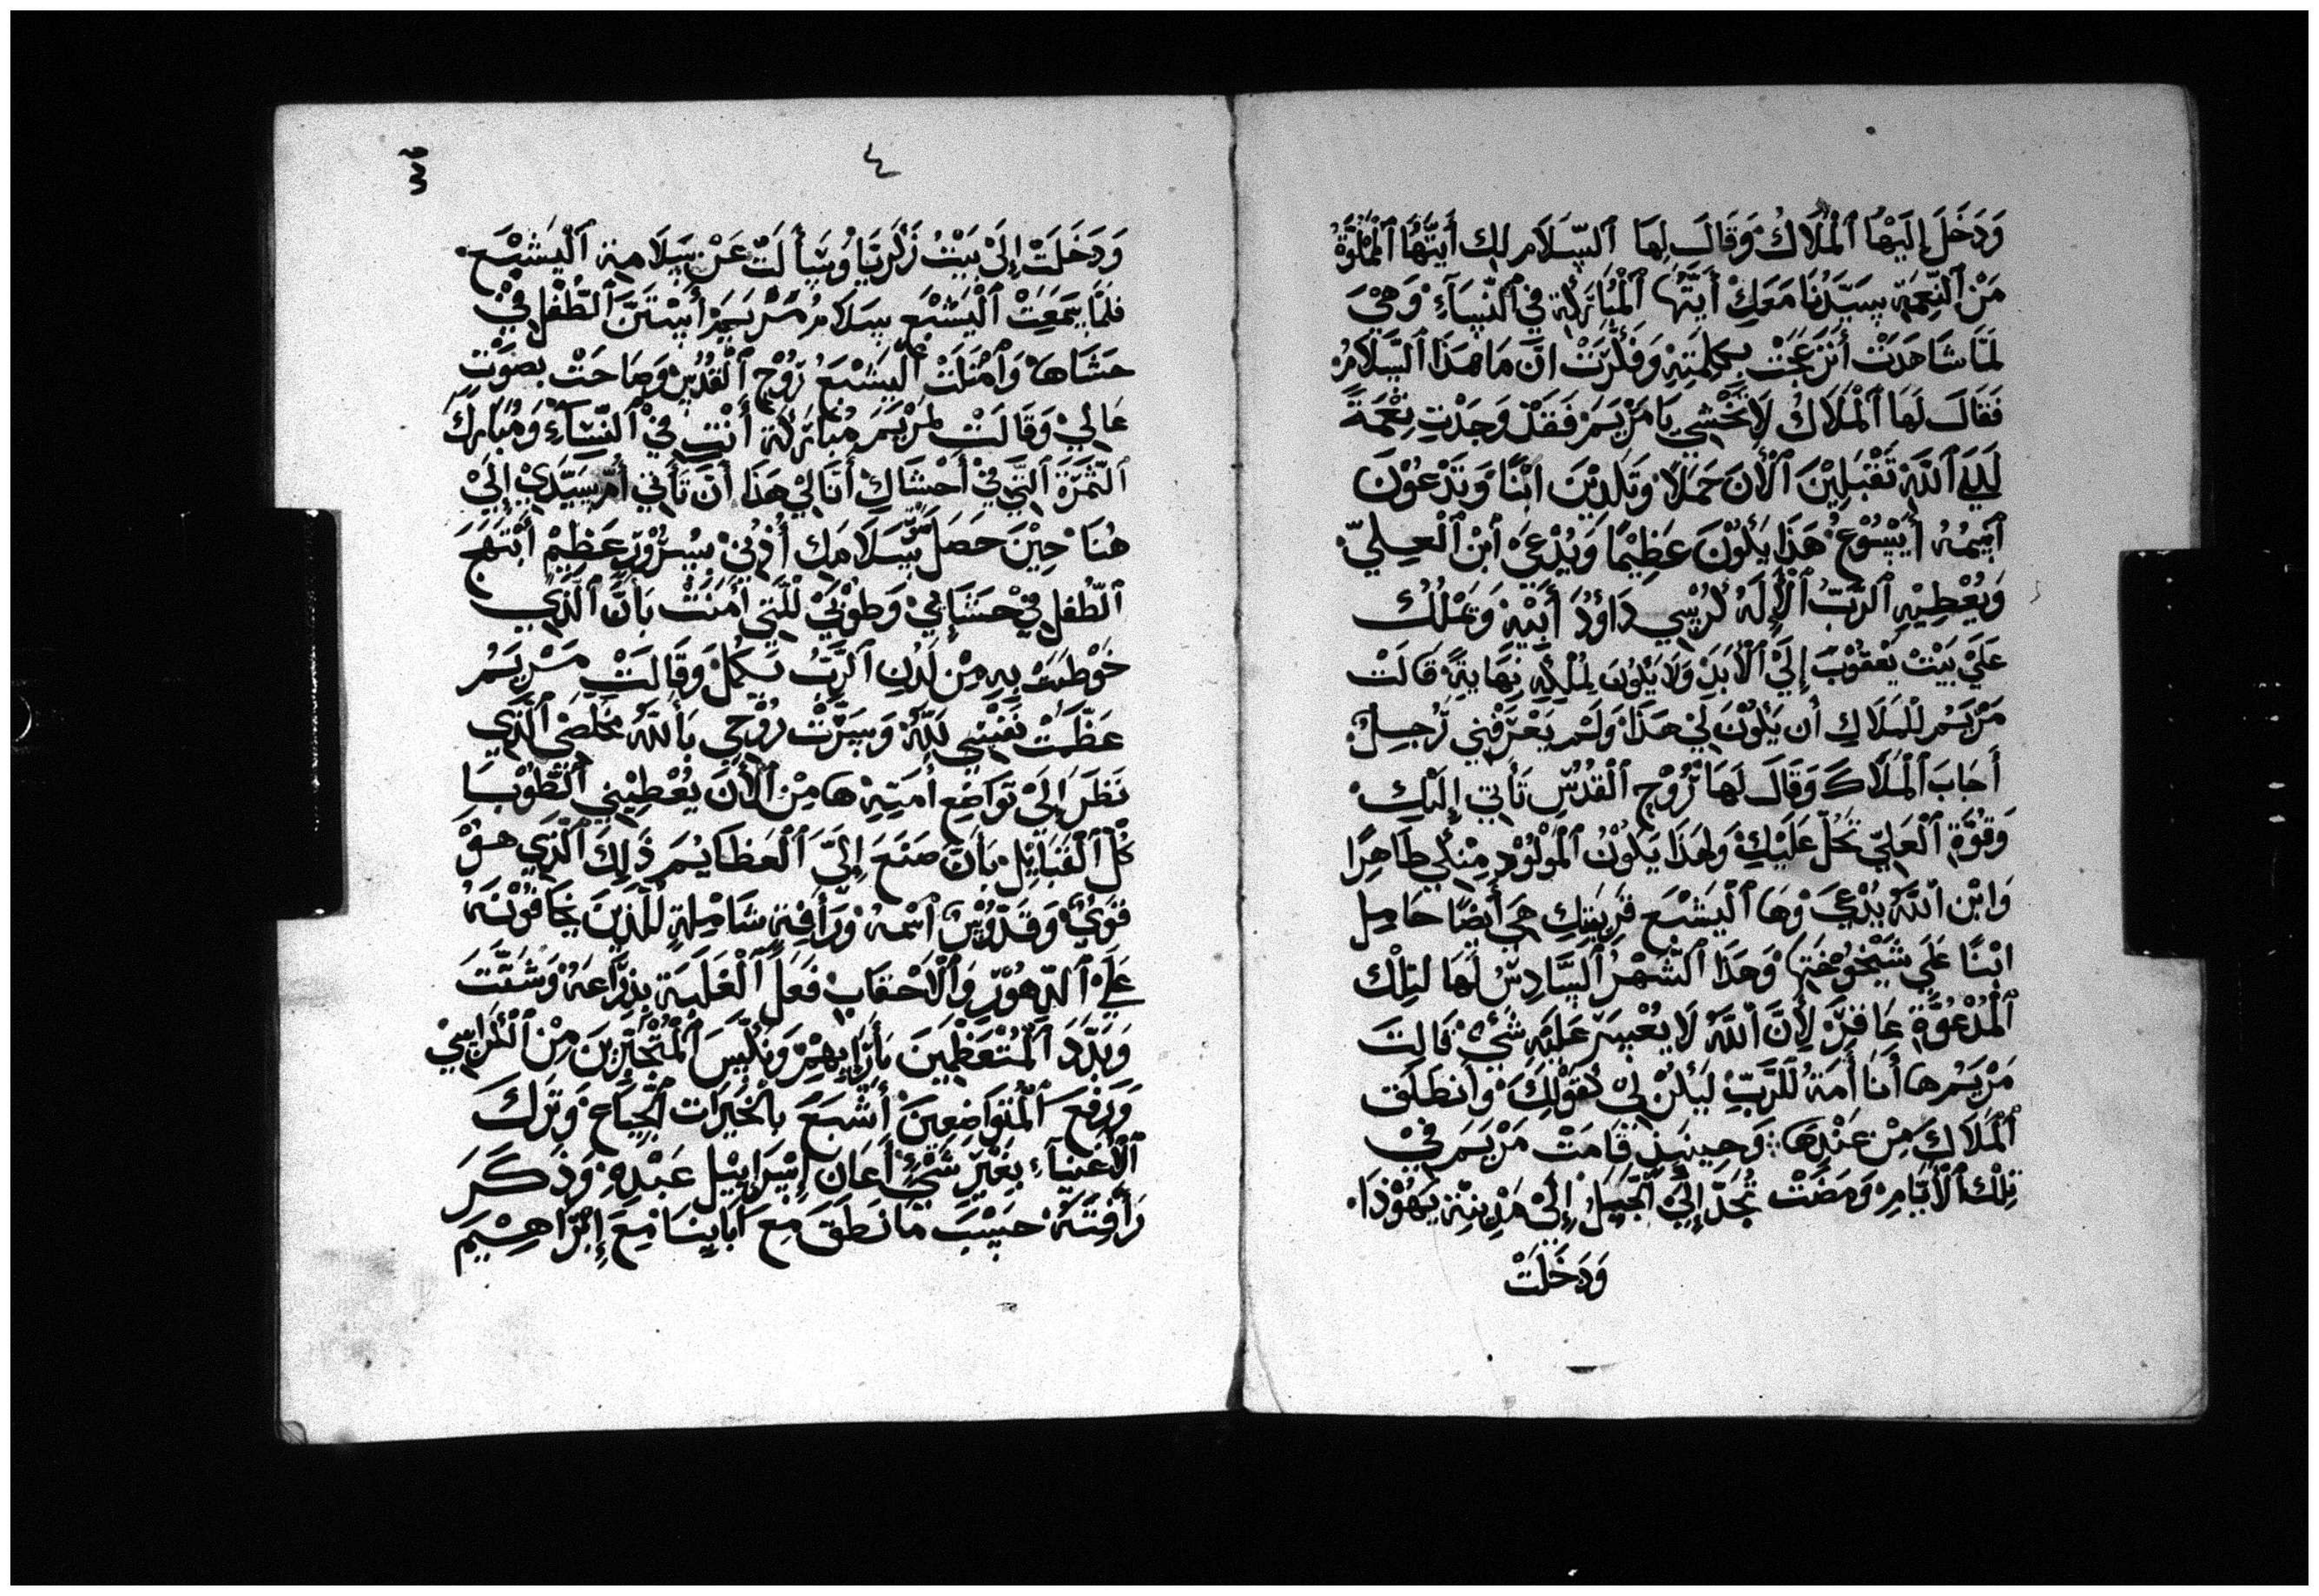 وَدَخَلَ إِلَيْهَا ٱلْمَلَاكُ وَقَالَ لِهَا ٱلسَّلَام لِك أَيَّتُهَا ٱلْمَمْلُوَّةُ
مَنْ ٱلنِعْمَة سَيِّدُنَا مَعَكِ أَيَّتُهَا ٱلْمُبَارَكَة فِي ٱلنِّسَآءِ وَهِيَ
لَمَّا شَاهَدَتْ أنزَعَجَتْ بِكِلِمَتِهِ وَفَكَّرَتْ انَّ مَا هَذَا ٱلسَّلَامُ
فَقَالَ لَهَا ٱلْمَلَاكُ لَا تَخْشِي يَا مَرْيَمَ فَقَدْ وَجَدْتِ نِعْمَةً
لَدَي ٱللَّهِ تَقْبَلِيْنَ ٱلْأَنَ حَمَلًا وَتَلِدِيْنَ ابْنًا وَتَدْعُوْنَ
ٱسْمُهُ أَيْسُوْعُ هَذَا يَكُوْنَ عَظِيْمًا وَيُدْعَيْ ٱبْنَ ٱلْعَلِيّ
وَيُعْطِيْهِ ٱلرَّبُّ ٱلْإِلَهُ كُرْسِي دَاوُدَ أَبِيْهِ وَيَمْلُكُ
عَلَيْ بَيْتْ يَعْقُوْبَ إِلَيْ ٱلْأَبَدَ وَلَا يَكُوْنَ لِمُلْكِهِ نِهَايَةً قَالَتْ
مَرْيَمُ لِلْمَلَاكِ أن يَكُوْنَ لِيْ هَذَا وَلَمْ يَعْرَفْنِي رَّجِلٌ
أَجَابَ ٱلْمَلَاكَ وَقَالَ لَهَا رُوْح ٱلْقُدُسِ تَأتِي إِلَيْكِ
وَقُوَّةِ ٱلْعَلِيّ تَحُلّ عَلَيْكِ وَلِهَذَا يَكُوْنُ ٱلْمَوْلُوْد مِنْكِي طَاهِرًا
وَابْن ٱللَّهُ يُدْعَيْ وَهَا ٱلْيَشْبَع قَرِيْبَتِكِ هِيَ أَيْضًا حَامِل
ابْنًا عَلَي شَيْخُوْخَتِهَا وَهَذَا ٱلشَّهْرُ ٱلسَّادِسُ لَهَا لتِلْك
ٱلْمُدْعُوَّةِ عَاقِرٌ لِأَنَّ ٱللَّهَ لَا يُعْسِرَ عَلَيْهِ شَيْءٌ قَالَتَ
مَرْيَمُ هَا أَنَا أَمَةُ لَلرَّبِّ لِيَكُنْ لِيْ كَقَوْلِكَ وَأنطَلَقَ
ٱلْمَلَاكَ مِنْ عَنْدِهَا وَحِينِيذٍ قَامَتْ مَرْيَمَ فِيْ
تِلْكَ ٱلْأَيَّامِ وَمَضَتْ تُجَدّ إِلَيْ ٱلْجَّبَلُ إِلَيْ مَدِينَةِ يَهُوْذَا
وَدَخَلَتْ
٤
وَدَخَلَتْ إِلَيْ بَيْتُ زَكَرِيَّا وَسَأَلَتْ عَنْ سَلَامِة ٱلْيَشْبَع
فَلَمَّا سَمَعَتْ ٱلْيَشْبَع سَلَامُ مَرْيَمَ أسْتَنَّ ٱلطِّفْل فِيْ
حَشَاهَا وَٱمْتَلَتْ ٱلْيَشْبَعُ رُوْح ٱلْقُدُسِ وَصَاحَتْ بِصَوْتٍ
عَالِيْ وَقَالَتْ لِمَرْيَمَ مُبَارَكَة أَنْتِ فِيْ ٱلنِّسَآءِ وَمُبَارَكَ
ٱلثَّمَرَةَ ٱلَّتِي فِيْ أَحْشَاكِ أَنَا لِيْ هَذَا أَنَّ تَأتِي أُمّ سَيِّدِيْ إِلَيْ
هُنَا حِيْنَ حَصَلَ سَّلَامَك أُذُنِيْ بسُرُوْرٍ عَظِيْمْ أبْتَهَجَ
ٱلطِّفْل فِيْ حَشَايِيْ وَطُوْبَيْ لِلَّتِي أَمَنَتْ بَأَنَّ ٱلَّذِي
خَوْطَبَتْ بِهِ مِنْ لَدُنِ ٱلرَّبُ يَكْمُلُ وَقَالَتْ مَرْيَمُ
عَظَّمَتْ نَفْسِي للَّهِ وَسَرَّتْ رُوْحِي بَٱللَّهِ مُخَلِّصِيْ ٱلَّذِي
نَظَرَ إِلَيْ تَوَاضِع أَمَتِهِ هَا مِنْ ٱلْأَنَ يُعْطِيْنِي ٱلطُّوْبَا
كُلّ ٱلْقَبَايِلْ بَأَنَّ صَنَعَ إِلَيَّ ٱلْعَظَايُمَ ذَلِكَ ٱلَّذِي هُوْ
قَوَيٌ وَقَدُّوْسٌ ٱسْمُهُ وَرَأفِتِهِ شَامِلِةٍ لِلَّذِيْنَ يَخَافُوْنَهُ
عَلَيْ ٱلدِّهُوْرِ وَٱلْاحْقَابِ فَعَلَ ٱلْغَلَبَةِ بِذِرَّاعَهُ وَشَتَّتَ
وَبَدَّدَ ٱلْمُتْعَظَّمِيْنَ بَأَرَايِهِمْ وَنَكَّسَ ٱلْمُتْجَبِّرِيْنَ مِنْ ٱلْكَرَاسِيْ
وَرَفَعَ ٱلْمُتَوَاضِعِيْنَ أَشْبَعَ بِالْخَيْرَاتِ ٱلْجِّيَاعْ وَتَرَكَ
ٱلْأغْنِيَآءِ بِغَيْرِ شَيْءٍ أَعَانَ إِسْرَايِيْل عَبْدِهِ وَذَكَرَ
رَأْفِتَهُ حَسَبَ مَا نَطَقَ مَعَ آبَايِنَا مَعَ إِبْرَاهِيْمَ